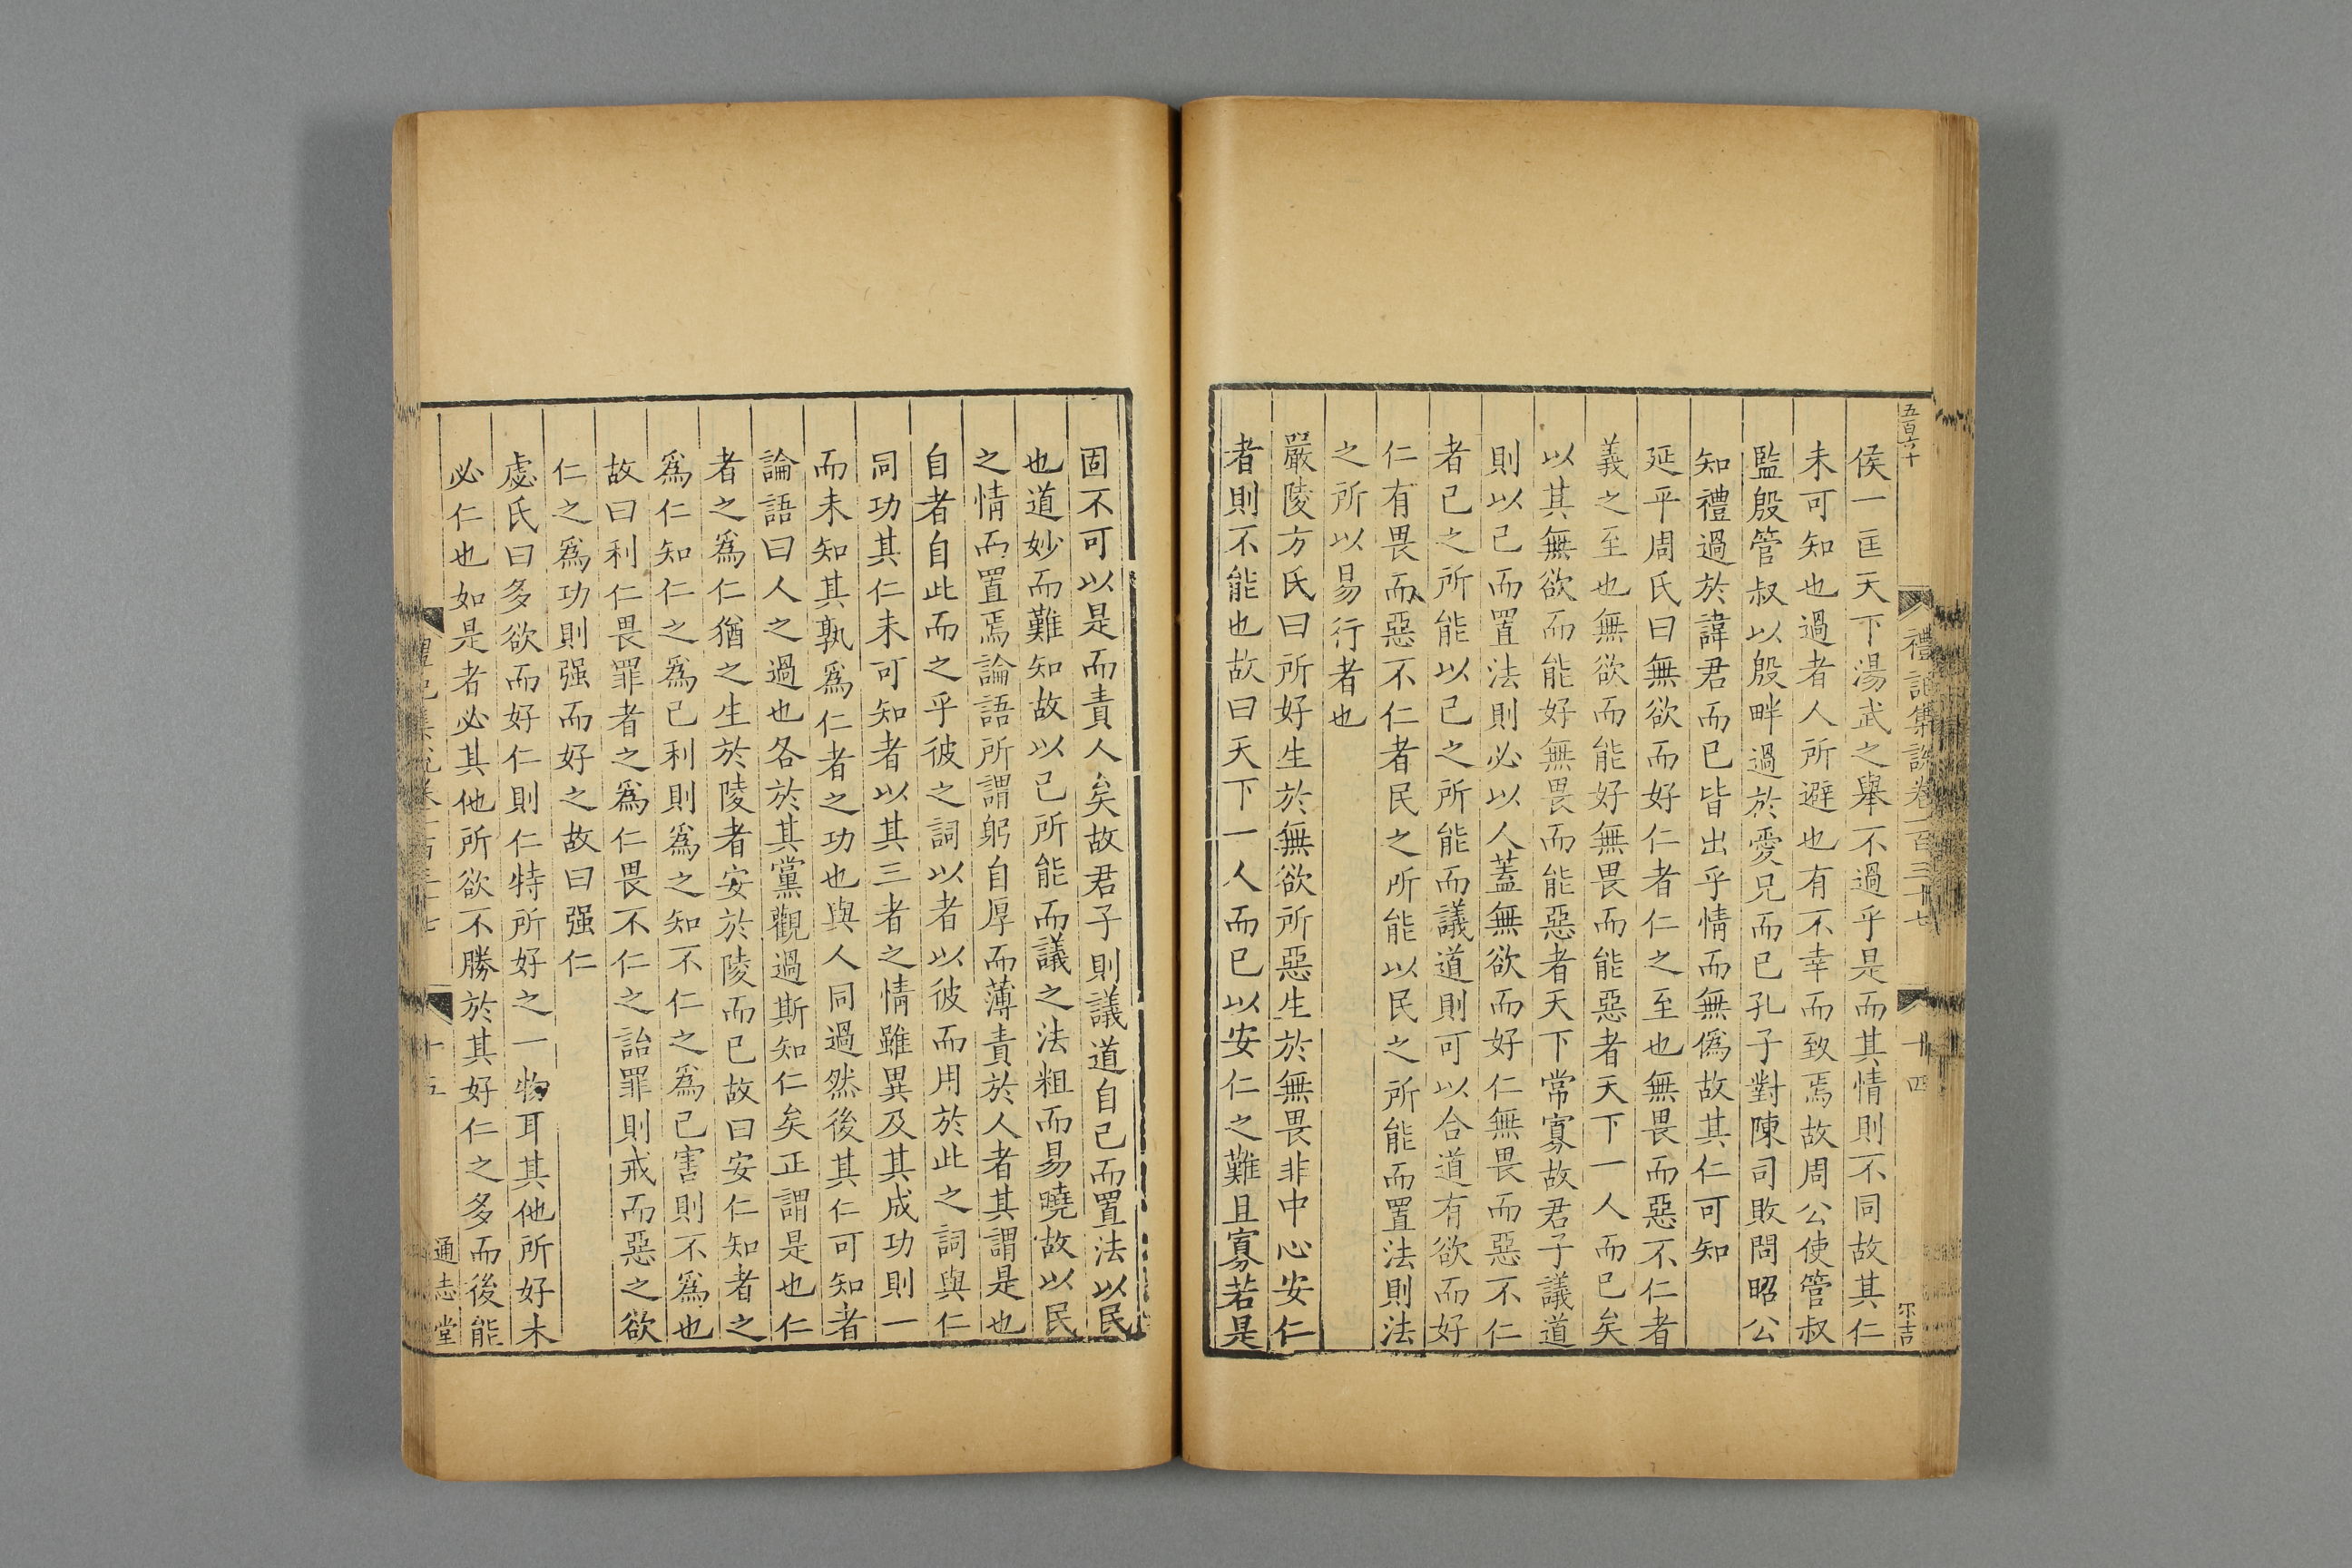 五百六十
禮記集說卷一百三十七
十四
侯一匡天下湯武之舉不過乎是而其情則不同故其仁
未可知也過者人所避也有不幸而致焉故周公使管叔
監殷管叔以殷畔過於愛兄而已孔子對陳司敗問昭公
知禮過於諱君而已皆出乎情而無僞故其仁可知
延平周氏曰無欲而好仁者仁之至也無畏而惡不仁者
義之至也無欲而能好無畏而能惡者天下一人而已矣
以其無欲而能好無畏而能惡者天下常寡故君子議道
則以己而置法則必以人蓋無欲而好仁無畏而惡不仁
者己之所能以己之所能而議道則可以合道有欲而好
仁有畏而惡不仁者民之所能以民之所能而置法則法
之所以易行者也
嚴陵方氏曰所好生於無欲所惡生於無畏非中心安仁
者則不能也故曰天下一人而已以安仁之難且寡若是
固不可以是而責人矣故君子則議道自己而置法以民
也道妙而難知故以己所能而議之法粗而易曉故以民
之情而置焉論語所謂躬自厚而薄責於人者其謂是也
自者自此而之乎彼之詞以者以彼而用於此之詞與仁
同功其仁未可知者以其三者之情雖異及其成功則一
而未知其孰爲仁者之功也與人同過然後其仁可知者
論語曰人之過也各於其黨觀過斯知仁矣正謂是也仁
者之爲仁猶之生於陵者安於陵而已故曰安仁知者之
爲仁知仁之爲己利則爲之知不仁之爲己害則不爲也
故曰利仁畏罪者之爲仁畏不仁之詒罪則戒而惡之欲
仁之爲功則强而好之故曰强仁
慮氏曰多欲而好仁則仁特所好之一物耳其他所好未
必仁也如是者必其他所欲不勝於其好仁之多而後能
禮記集說卷一百三十七
十五
通志堂